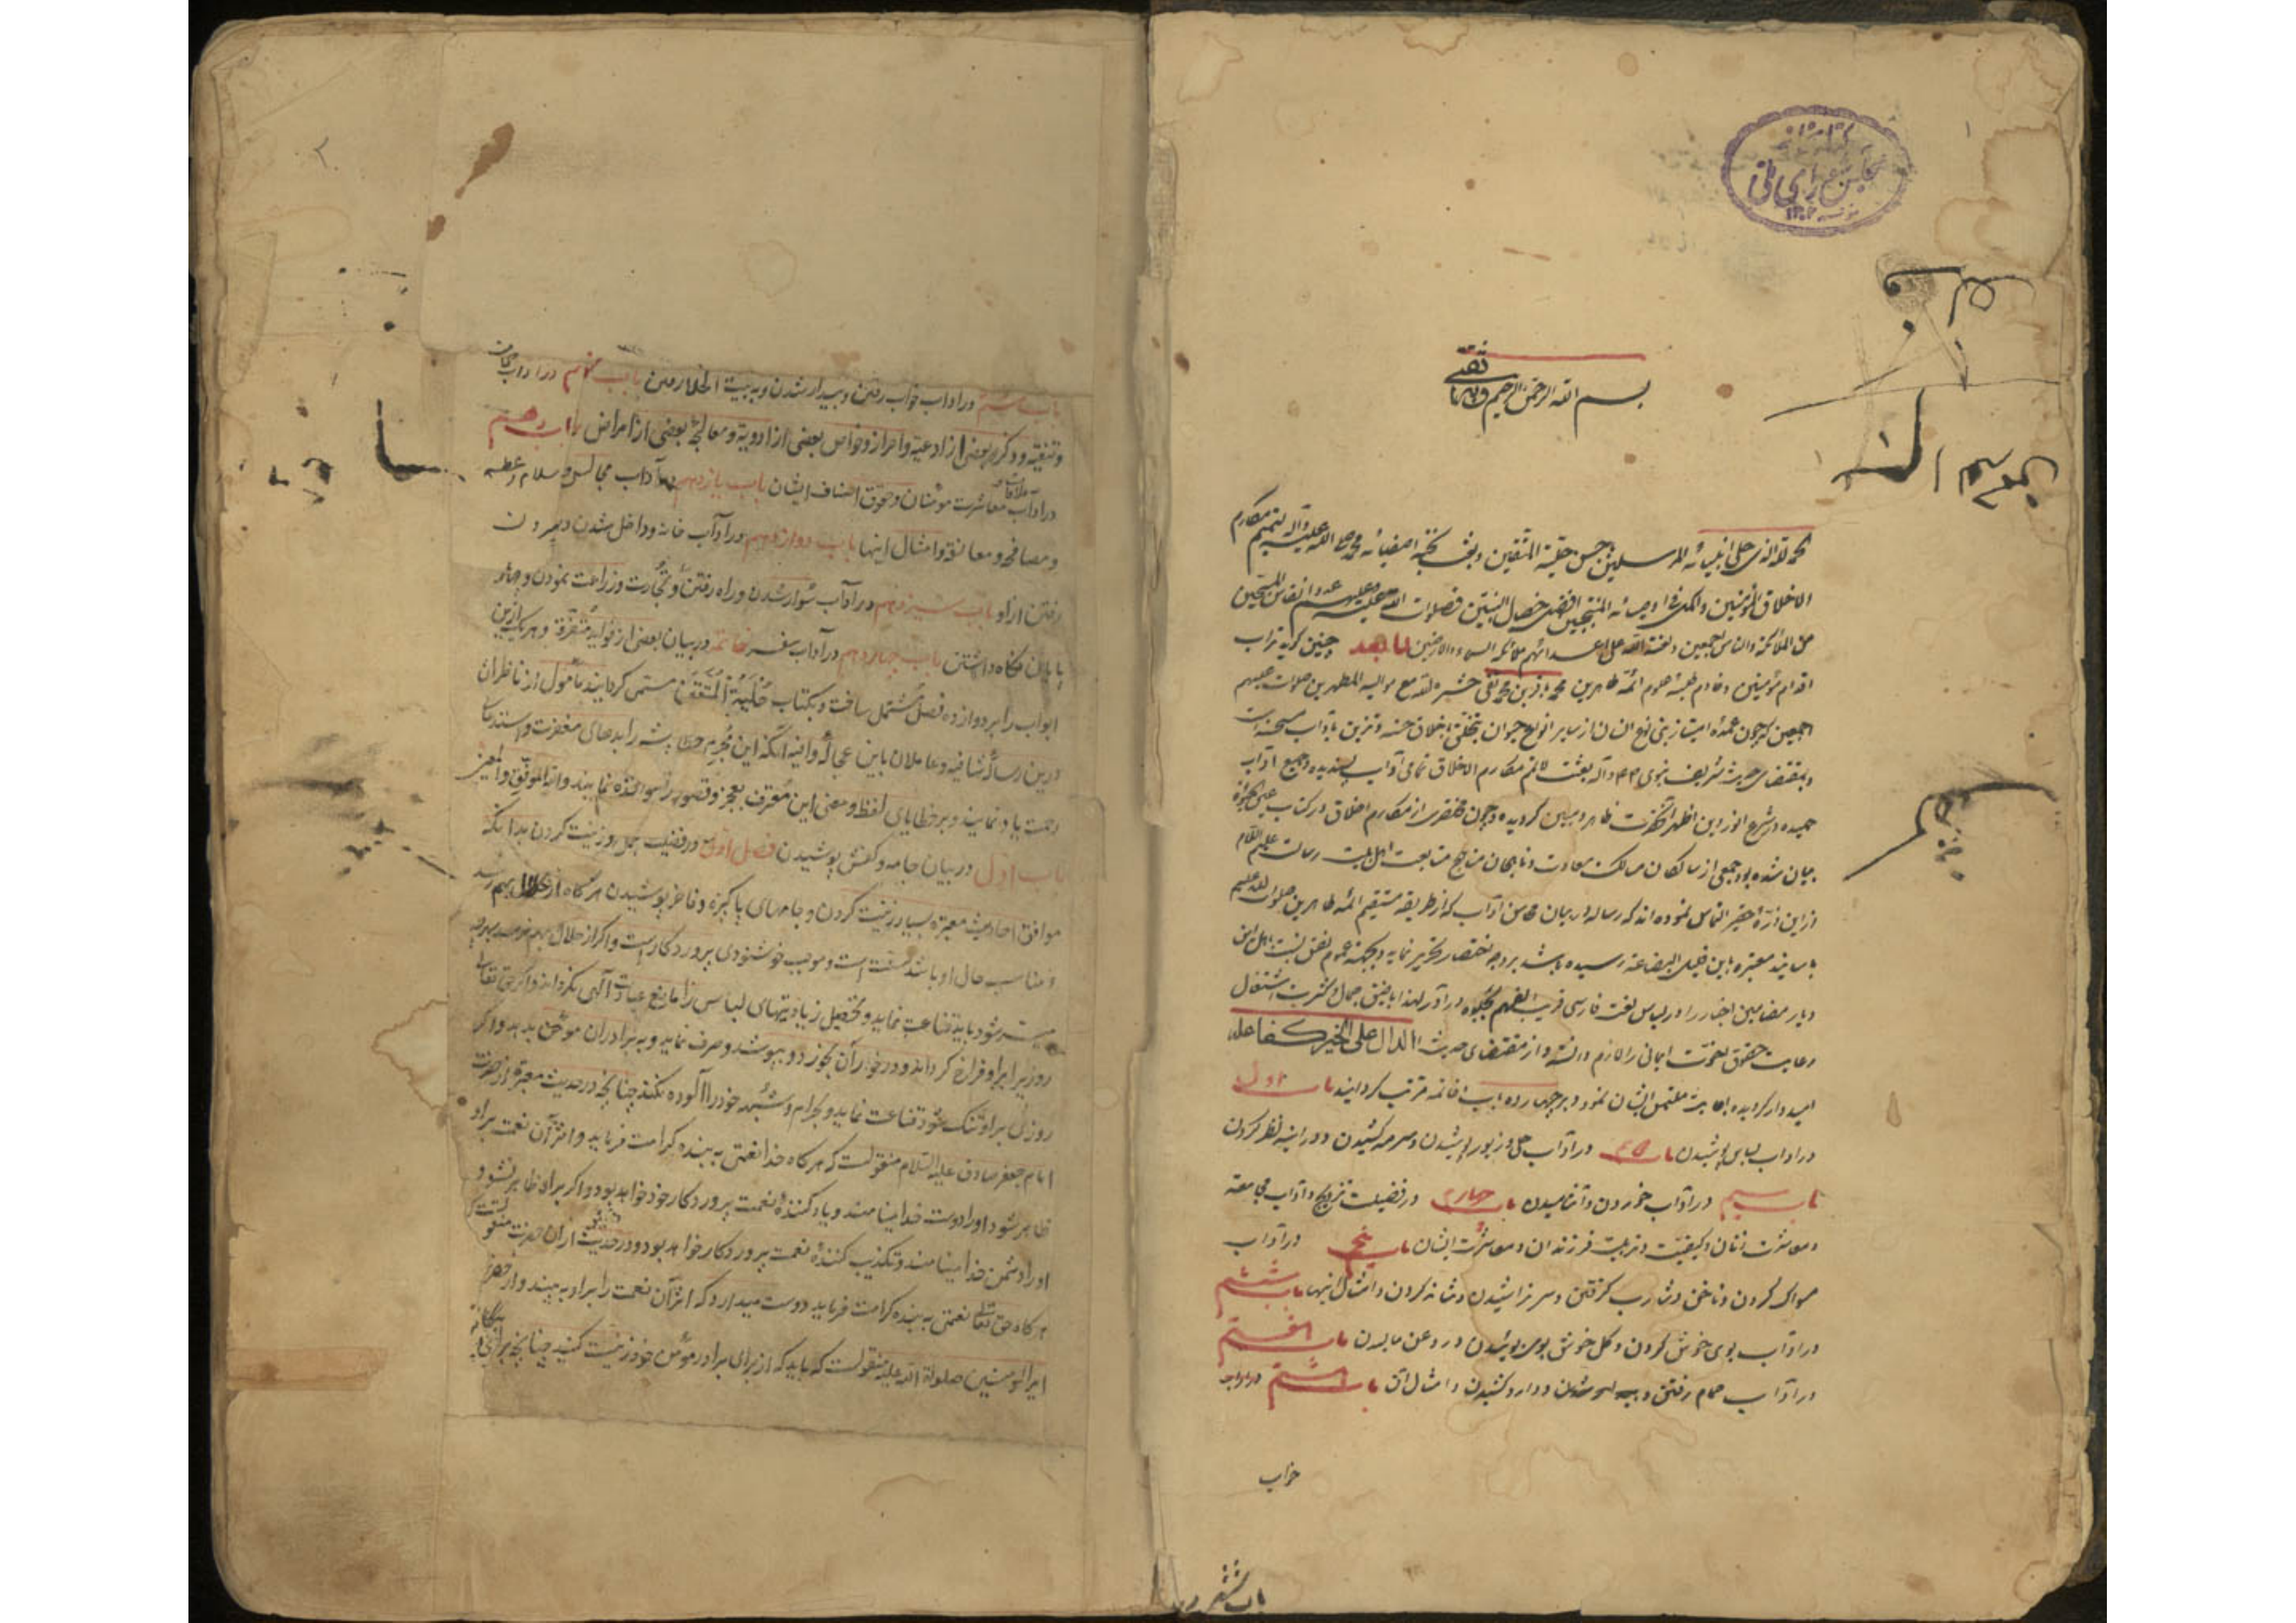 بسم الله الرحمن الرحیم و به ثقتی
الحمد لله الذی حلی انبیائه المرسلین باحسن حلیة المتقین وبعث نخبة اصفیائه محمد صلی الله علیه وآله لتتمیم مکارم
الاخلاق المؤمنین واکمل فی اوصیائه المنتجبین افضل خصال النبیین فصلوات الله علیه وعلیهم عدد انفاس المسبحین
من الملائکة والناس اجمعین ولعنة الله علی اعدائهم ملأ السماء والارضین اما بعد چنین گوید تراب
اقدام مؤمنین وخادم طلبه علوم ائمه طاهرین محمد باقر بن محمد تقی حشره الله مع موالیه المطهرین صلوات الله علیهم
اجمعین که چون عمده امتیاز بنی نوع انسان از سایر انواع حیوان بتخلق باخلاق حسنه و تزین بآداب مستحسنه است
وبمقتضای حدیث شریف نبوی وآله بعثت لاتمم مکارم الاخلاق تمامی آداب پسندیده وجمیع اداب
حمیده در شرع انور ودین اظهر آنحضرت ظاهر ومبین گردیده وچون مختصری از مکارم اخلاق در کتاب عین الحیوة
بیان شده بود جمعی از سالکان مسالک سعادت وناهجان مناهج متابعت اهل بیت رسالت علیهم السلام
از این ذرّه حقیر التماس نموده اند که رساله در بیان محاسن آداب که از طریقه مستقیم ائمه طاهرین صلوات الله علیهم
باسانید معتبره باین قلیل البضاعة رسیده باشد بر وجه اختصار تحریر نماید وبجهة عموم نفع نسبت باهل این
دیار مضامین اخبار را در لباس لغت فارسی قریب الفهم جلوه در آورد لهذا با ضیق مجال وکثرت اشتغال
رعایت حقوق اخوّت ایمانی را لازم دانسته واز مقتضای حدیث الدال علی الخیر کفاعله
امیدوار گردیده اجابت ملتمس ایشان نمود وبر چهارده باب و خاتمه مرتب گردانید باب اول
در اداب لباس پوشیدن باب دویم در آداب حلی وزیور پوشیدن وسرمه کشیدن ودر اینه نظر کردن
باب سیم در آداب خوردن وآشامیدن باب چهارم در فضیلت تزویج وآداب مجامعت
ومعاشرت زنان وکیفیت تربیت فرزندان ومعاشرت ایشان باب پنجم در آداب
مسواک کردن وناخن وشارب گرفتن وسر تراشیدن وشانه کردن وامثال اینها باب ششم
در آداب بوی خوش کردن وگل خوش بوی بوئیدن وروغن مالیدن باب هفتم
در آداب حمام رفتن و دارو کشیدن وامثال آن باب هشتم در آداب
خواب
باب هشتم در اداب خواب رفتن وبیدار شدن وبه بیت الخلا رفتن باب نهم در اداب حجامت
وتنقیه وذکر بعضی از ادعیه واحراز وخواص بعضی از ادویه ومعالجه بعضی از امراض باب دهم
در آداب معاشرت مؤمنان وحقوق اصناف ایشان باب یازدهم در آداب مجالس وسلام وعطسه
ومصافحه ومعانقه وامثال اینها باب دوازدهم در آداب خانه وداخل شدن وبیرون
رفتن از او باب سیزدهم در آداب سوار شدن وراه رفتن وتجارت وزراعت نمودن وچهار
پایان نگاه داشتن باب چهاردهم در آداب سفر خاتمه در بیان بعضی از فواید متفرقه وهر یک ازین
ابواب را بر دوازده فصل مشتمل ساخت وبکتاب حلیة المتقین مسمی گردانید مأمول از ناظران
درین رساله شافیه وعاملان باین عجاله وافیه آنکه این مجرم خطا پیشه را بدعای مغفرت واستدعای
رحمت یاد نمایند وبر خطایای لفظ ومعنی این معترف بعجز وقصور را مواخذه ننمایند والله الموفق والمعین
باب اول در بیان جامه وکفش پوشیدن فصل اول در فضیلت تجمل وزینت کردن بدانکه
موافق احادیث معتبره بسیار زینت کردن وجامهای پاکیزه وفاخر پوشیدن هر گاه از حلال بهم رسد
ومناسب حال او باشد سنت است وموجب خوشنودی پروردگار است واگر از حلال بهم نرسد بهرچه
میسر شود باید قناعت نماید وتحصیل زیادتیهای لباس را مانع عبادت آلهی نگرداند واگر حق تعالی
روزیرا بر او فراخ گرداند ودر خور آن بخورد وبپوشد وصرف نماید وبه برادران مومن بدهد واگر
روزی بر او تنگ شود قناعت نماید وبحرام وشبهه خود را آلوده نکند چنانچه در حدیث معتبر از حضرت
امام جعفر صادق علیه السلام منقولست که هر گاه خدا نعمتی به بنده کرامت فرماید واثر آن نعمت بر او
ظاهر شود او را دوست خدا مینامند ویاد کننده نعمت پروردگار خود خواهد بود واگر بر او ظاهر نشود
او را دشمن خدا مینامند وتکذیب کننده نعمت پروردگار خواهد بود ودر حدیث دیگر از ان حضرت منقولست که
هر گاه حق تعالی نعمتی به بنده کرامت فرماید دوست میدارد که اثر آن نعمت را بر او به بیند واز حضرت
امیر المومنین صلوات الله علیه منقولست که باید که از برای برادر مومن خود زینت کنید چنانچه برای بیگانه